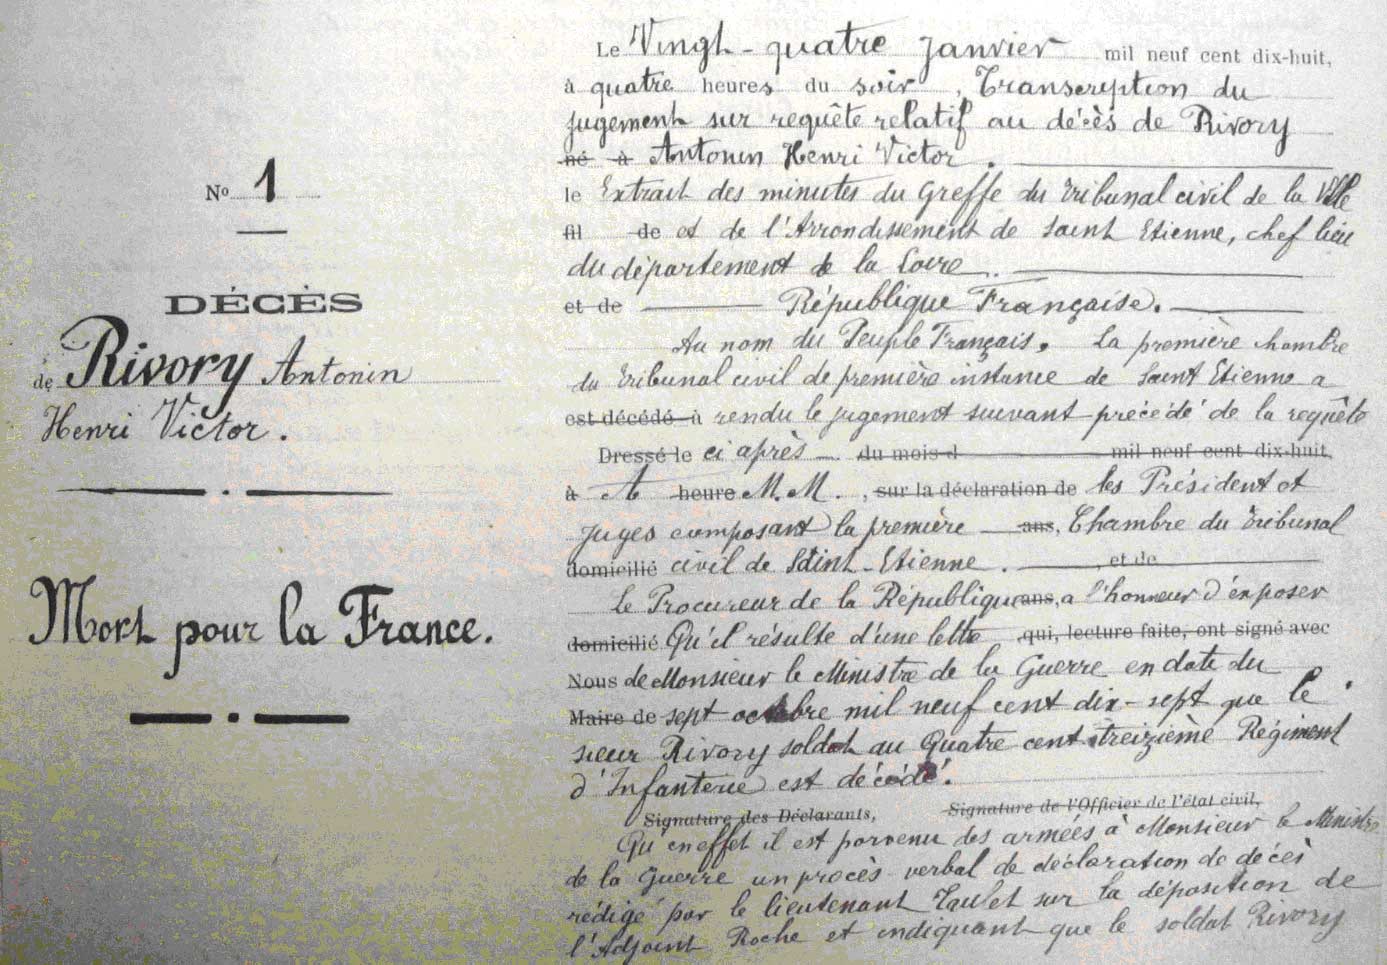 N° 1
DÉCÈS
de Rivory Antonin
Henri Victor.
Mort pour la France.
Le Vingt-quatre Janvier mil neuf cent dix-huit,
à quatre heures du soir, Transcription du
jugement sur requête relatif au décès de Rivory
né à Antonin Henri Victor.
le Extrait des minutes du Greffe du Tribunal civil de la Ville
fil de et de l'Arrondissement de Saint Etienne, chef lieu
du département de la Loire.
et de République Française.
Au nom du Peuple Français. La première chambre
du Tribunal civil de première instance de Saint Etienne a
est décédé à rendu le jugement suivant précédé de la requête
Dressé le ci après du mois d mil neuf cent dix-huit,
à A heure M.M., sur la déclaration de les Président et
Juges composant la première ans, Chambre du Tribunal
domicilié civil de Saint-Etienne. , et de
Le Procureur de la République ans, a l'honneur d'exposer
domicilié Qu'il résulte d'une lettre qui, lecture faite, ont signé avec
Nous de Monsieur le Ministre de la Guerre en date du
Maire de sept octobre mil neuf cent dix-sept que le
sieur Rivory soldat au Quatre cent treizième Régiment
d'Infanterie est décédé.
Signature des Déclarants, Signature de l'Officier de l'état civil,
Qu'en effet il est parvenu des armées à Monsieur le Ministre
de la Guerre un procès-verbal de déclaration de décès
rédigé par le lieutenant Taulet sur la déposition de
l'Adjoint Roche et indiquant que le soldat Rivory